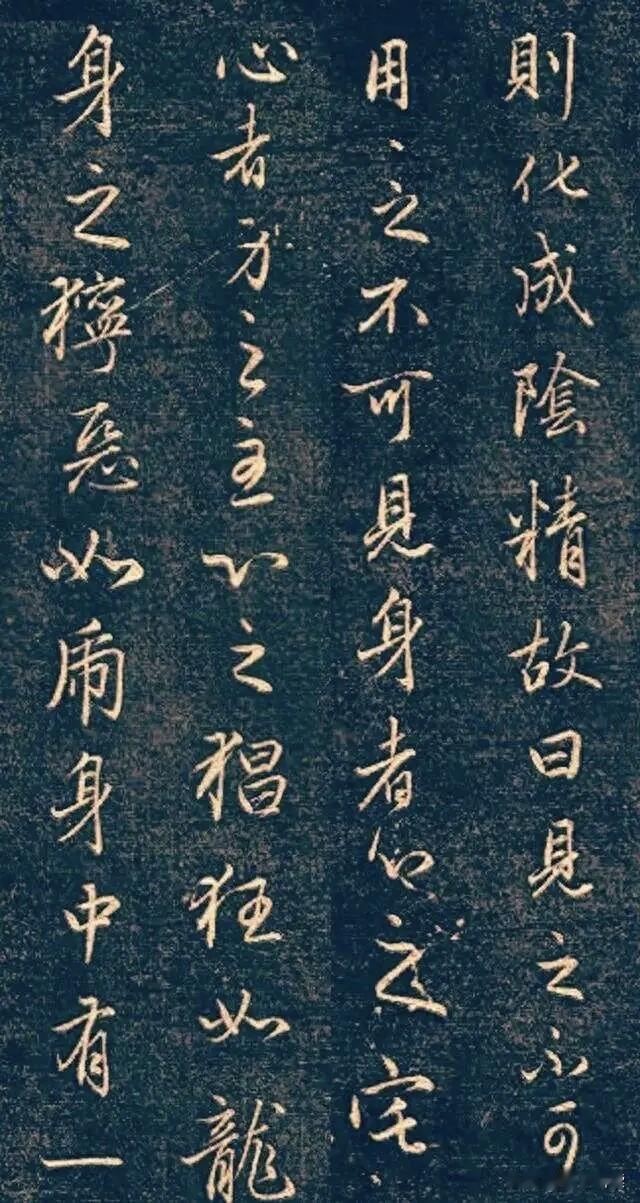 則化成陰精故曰見之不可
用之不可見身者心之宅
心者身之主心之猖狂如龍
身之獰惡如虎身中有一